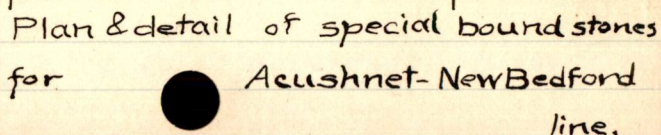 Plan & detail of special bound stones
for Acushnet-New Bedford
line.